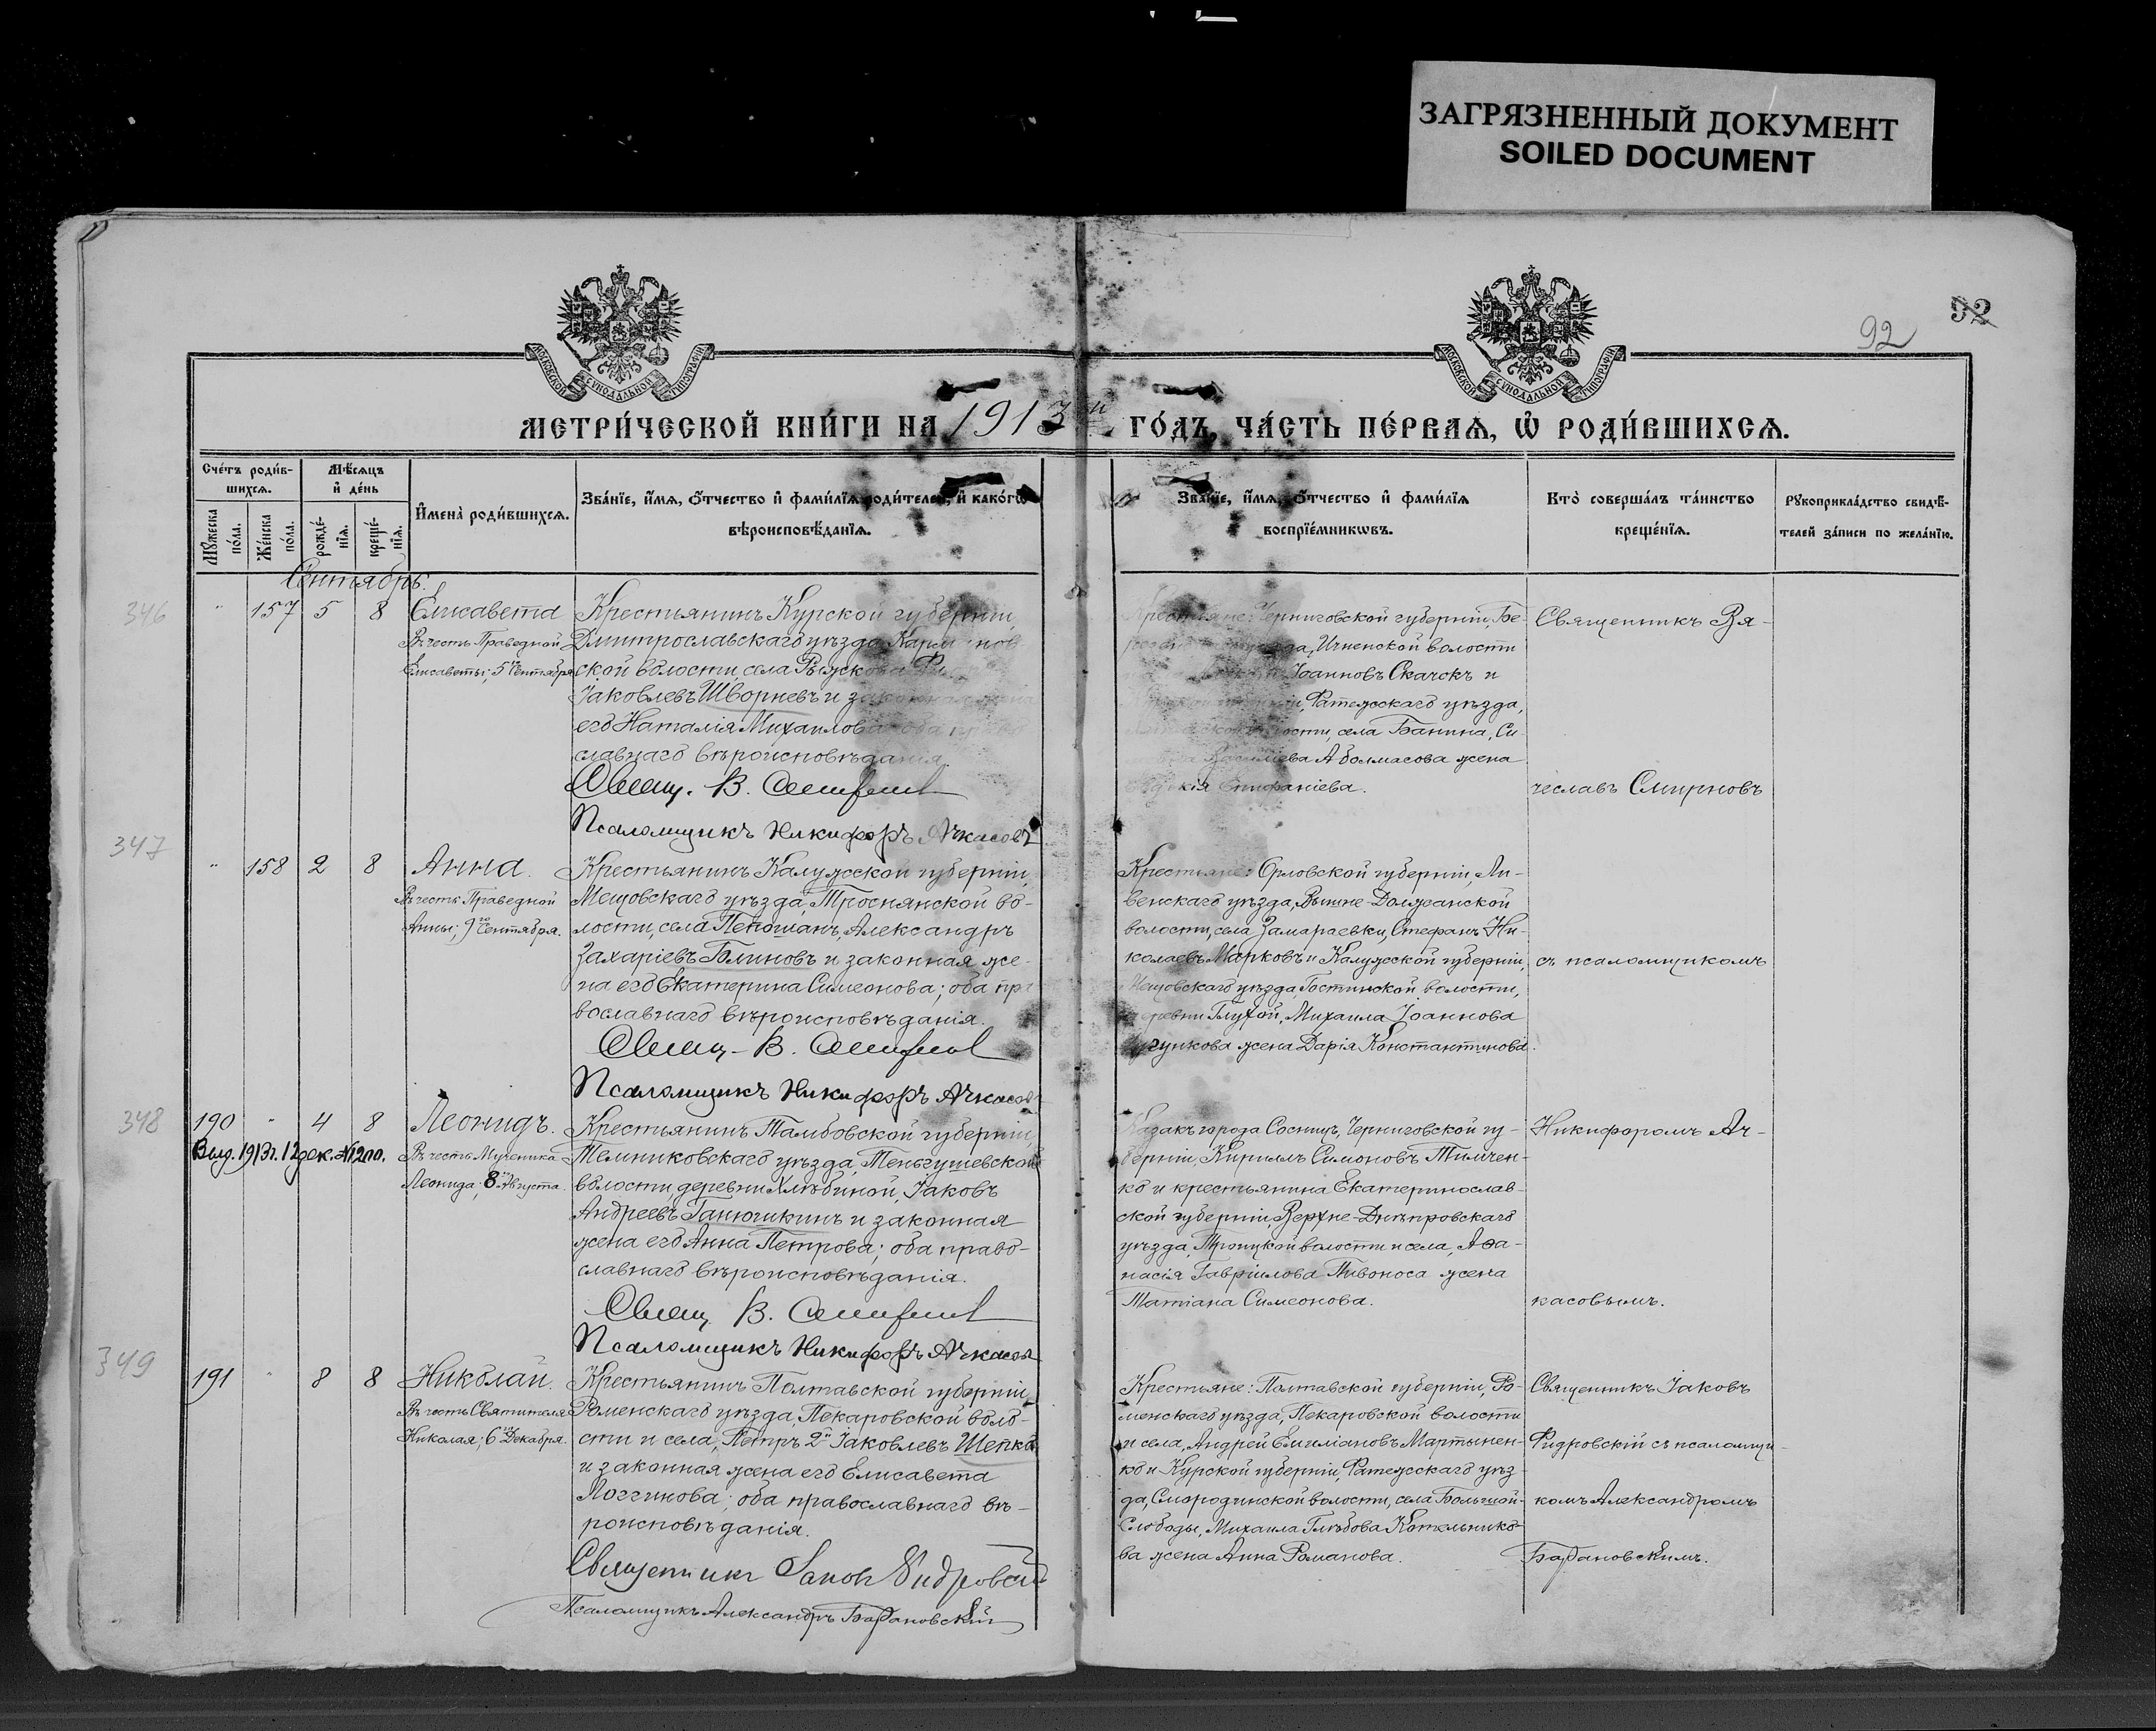 ЗАГРЯЗНЕННЫЙ ДОКУМЕНТ
SOILED DOCUMENT
МОСКОВСКОЙ СУНОДАЛЬНОЙ ТИПОГРАФІИ
МОСКОВСКОЙ СУНОДАЛЬНОЙ ТИПОГРАФІИ
92
92
МЕТРИ́ЧЕСКОЙ КНИ́ГИ НА 1913й ГО́ДЪ, ЧА́СТЬ ПЕ́РВАЯ, Ѡ РОДИ́ВШИХСЯ.
Сче́тъ роди́в-
шихся.
Мѣ́сяцъ
и де́нь
Му́жеска
по́ла.
Же́нска
по́ла.
рожде́-
нія.
креще́-
нія.
Имена̀ роди́вшихся.
Зва́нїе, и́мя, о́тчество и фами́лїя родителей, и како́гѡ
вѣроисповѣ́данїя.
Зва́нїе, и́мя, о́тчество и фами́лїя
воспрїе́мникωвъ.
Кто̀ соверша́лъ та́инство
креще́нїя.
Рукоприкла́дство свидѣ́-
телей за́писи по жела́нїю.
Сентябрь
346
" 157 5 8 Елисавета
Въ честь Праведной
Елисаветы; 5го Сентября
Крестьянинъ Курской губерніи,
Дмитрославскаго уѣзда,
ской волости, села
Іаковлевъ Шворневъ и законная жена
его Наталія Михаилова; оба право
славнаго вѣроисповѣданія.
Свящ. В. Смирнов
Псаломщикъ Никифоръ Ачкасовъ
Крестьяне: Черниговской губерніи, Бо-
уѣзда, Ичненской волости
Іоанновъ Скачекъ и
Фатежскаго уѣзда,
волости, села Банина, Си-
Василіева Аболмасова жена
Епифаніева.
Священникъ Вя-
чеславъ Смирновъ
347
" 158 2 8 Анна.
Въ честь Праведной
Анны; 9го Сентября.
Крестьянинъ Калужской губерніи,
Мещовскаго уѣзда, Троснянской во-
лости, села Александръ
Захаріевъ Блиновъ и законная же-
на его Екатерина Симеонова; оба пра
вославнаго вѣроисповѣданія.
Свящ. В. Смирнов
Псаломщикъ Никифоръ Ачкасов
Крестьяне: Орловской губерніи, Ли-
венскаго уѣзда, Вышне-Должанской
волости, села Замараевки, Стефанъ Ни-
колаевъ Марковъ и Калужской губерніи,
Мещовскаго уѣзда, Гостинской волости,
деревни Глухой, Михаила Іоаннова
жена Дарія Константинова.
съ псаломщикомъ
348
190 " 4 8 Леонидъ.
Выд. 1913 г. 12 дек. № 1200.
Въ честь Мученика
Леонида; 8го Августа.
Крестьянинъ Тамбовской губерніи,
Темниковскаго уѣзда, Теньгушевской
волости, деревни Хлѣбиной, Іаковъ
Андреевъ Ганюшкинъ и законная
жена его Анна Петрова; оба право-
славнаго вѣроисповѣданія.
Свящ. В. Смирнов
Псаломщикъ Никифоръ Ачкасов
Казакъ города Сосницъ, Черниговской гу-
берніи, Кириллъ Симоновъ Тимчен-
ко и крестьянина Екатеринослав-
ской губерніи, Верхне-Днѣпровскаго
уѣзда, Троицкой волости и села, Аѳа-
насія Гавріилова Пивоноса жена
Татіана Симеонова.
Никифоромъ Ач-
касовымъ.
349
191 " 8 8 Николай.
Въ честь Святителя
Николая; 6го Декабря.
Крестьянинъ Полтавской губерніи,
Роменскаго уѣзда, Пекаровской воло-
сти и села, Петръ 2й Іаковлевъ Шепко
и законная жена его Елисавета
Логгинова; оба православнаго вѣ-
роисповѣданія.
Священникъ Іаковъ Фидровскій
Псаломщикъ Александръ Барановскій
Крестьяне: Полтавской губерніи, Ро-
менскаго уѣзда, Пекаровской волости
и села, Андрей Емиліановъ Мартынен-
ко и Курской губерніи, Фатежскаго уѣз-
да, Смородинской волости, села Большой-
Слободы, Михаила Глѣбова Котельнико-
ва жена Анна Романова.
Священникъ Іаковъ
Фидровскій съ псаломщи-
комъ Александромъ
Барановскимъ.